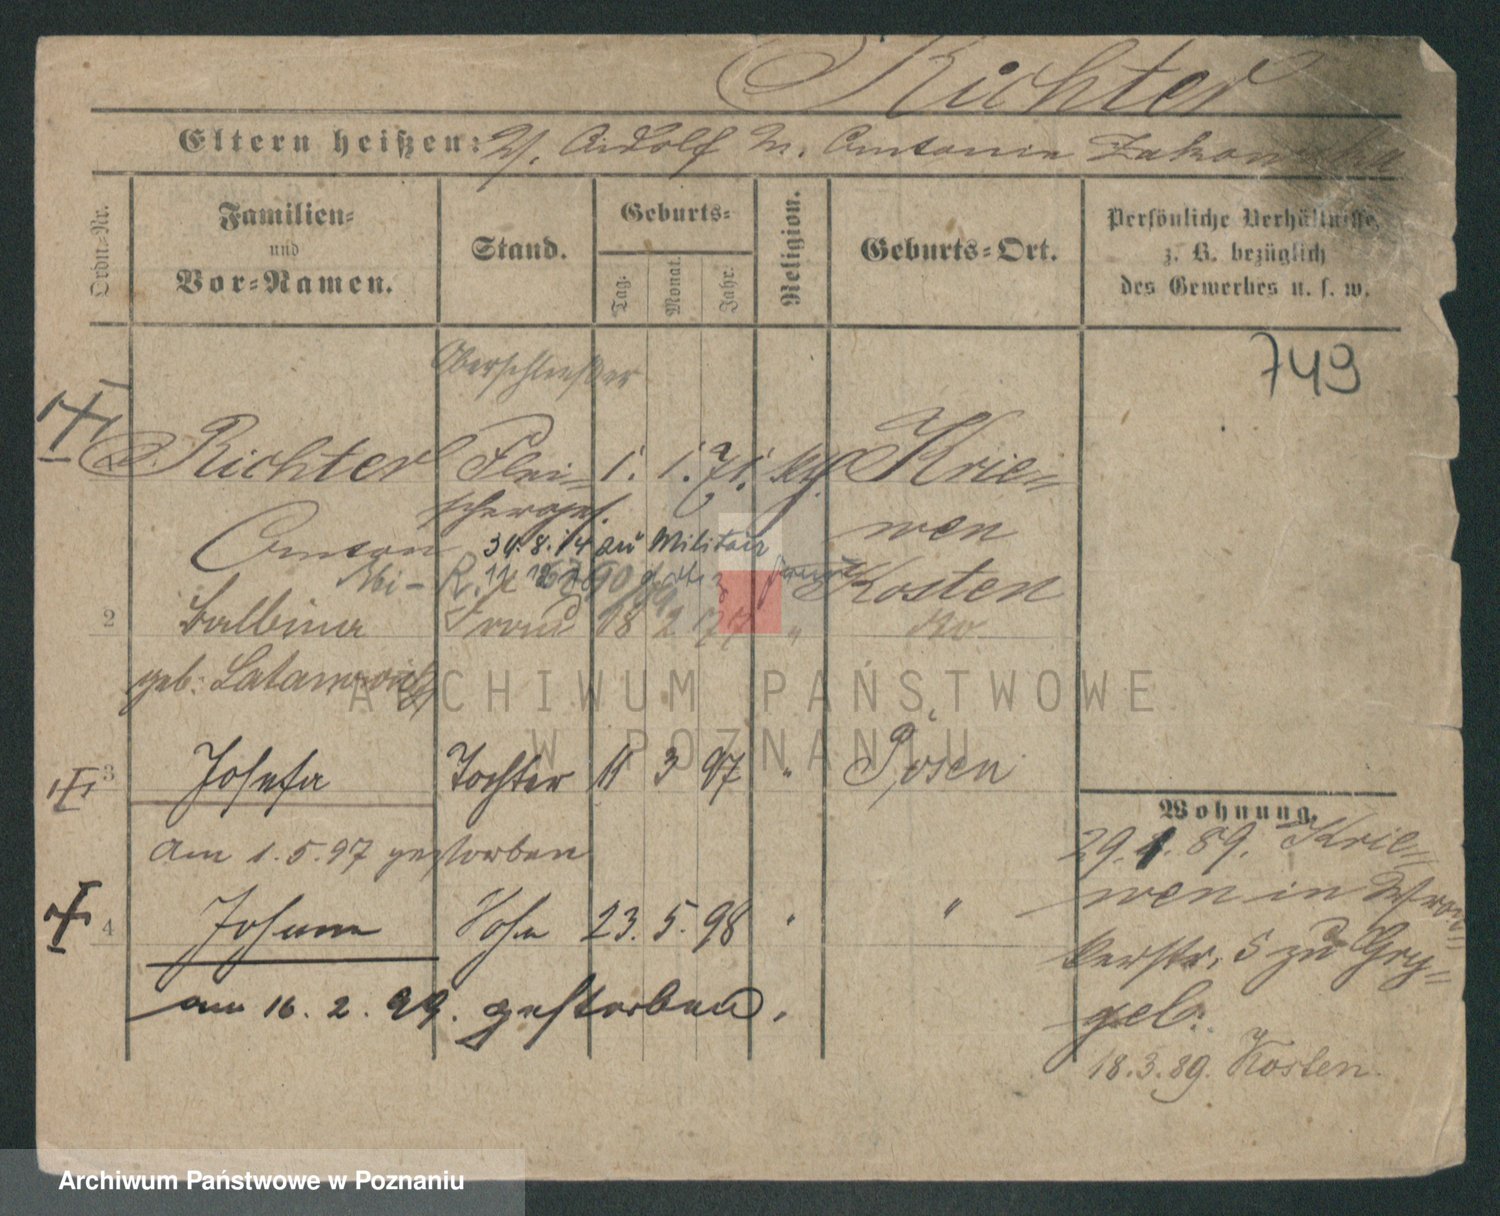 Richter
Eltern heißen: V. Adolf M. Antonie
Ordn.-Nr.
Familien- und Vor-Namen.
Stand.
Geburts-
Tag.
Monat.
Jahr.
Religion.
Geburts-Ort.
Persönliche Verhältnisse, z. B. bezüglich des Gewerbes u. s. w.
749
Richter Flei- 1. 1. 71. Krie-
Anton wen
30.8.14 zu Militair
Kosten
2 Balbina Frau 18 2 77 "
geb.
3 Josefa Tochter 11 3 97 " Posen
am 1.5.97 gestorben
4 Johann Sohn 23. 5. 98 " "
am 16. 2. 99. gestorben.
Wohnung.
29.1.89. Krie-
wen in
5 zu Gry-
geb.
18.3.89. Kosten.
ARCHIWUM PAŃSTWOWE
W POZNANIU
Archiwum Państwowe w Poznaniu